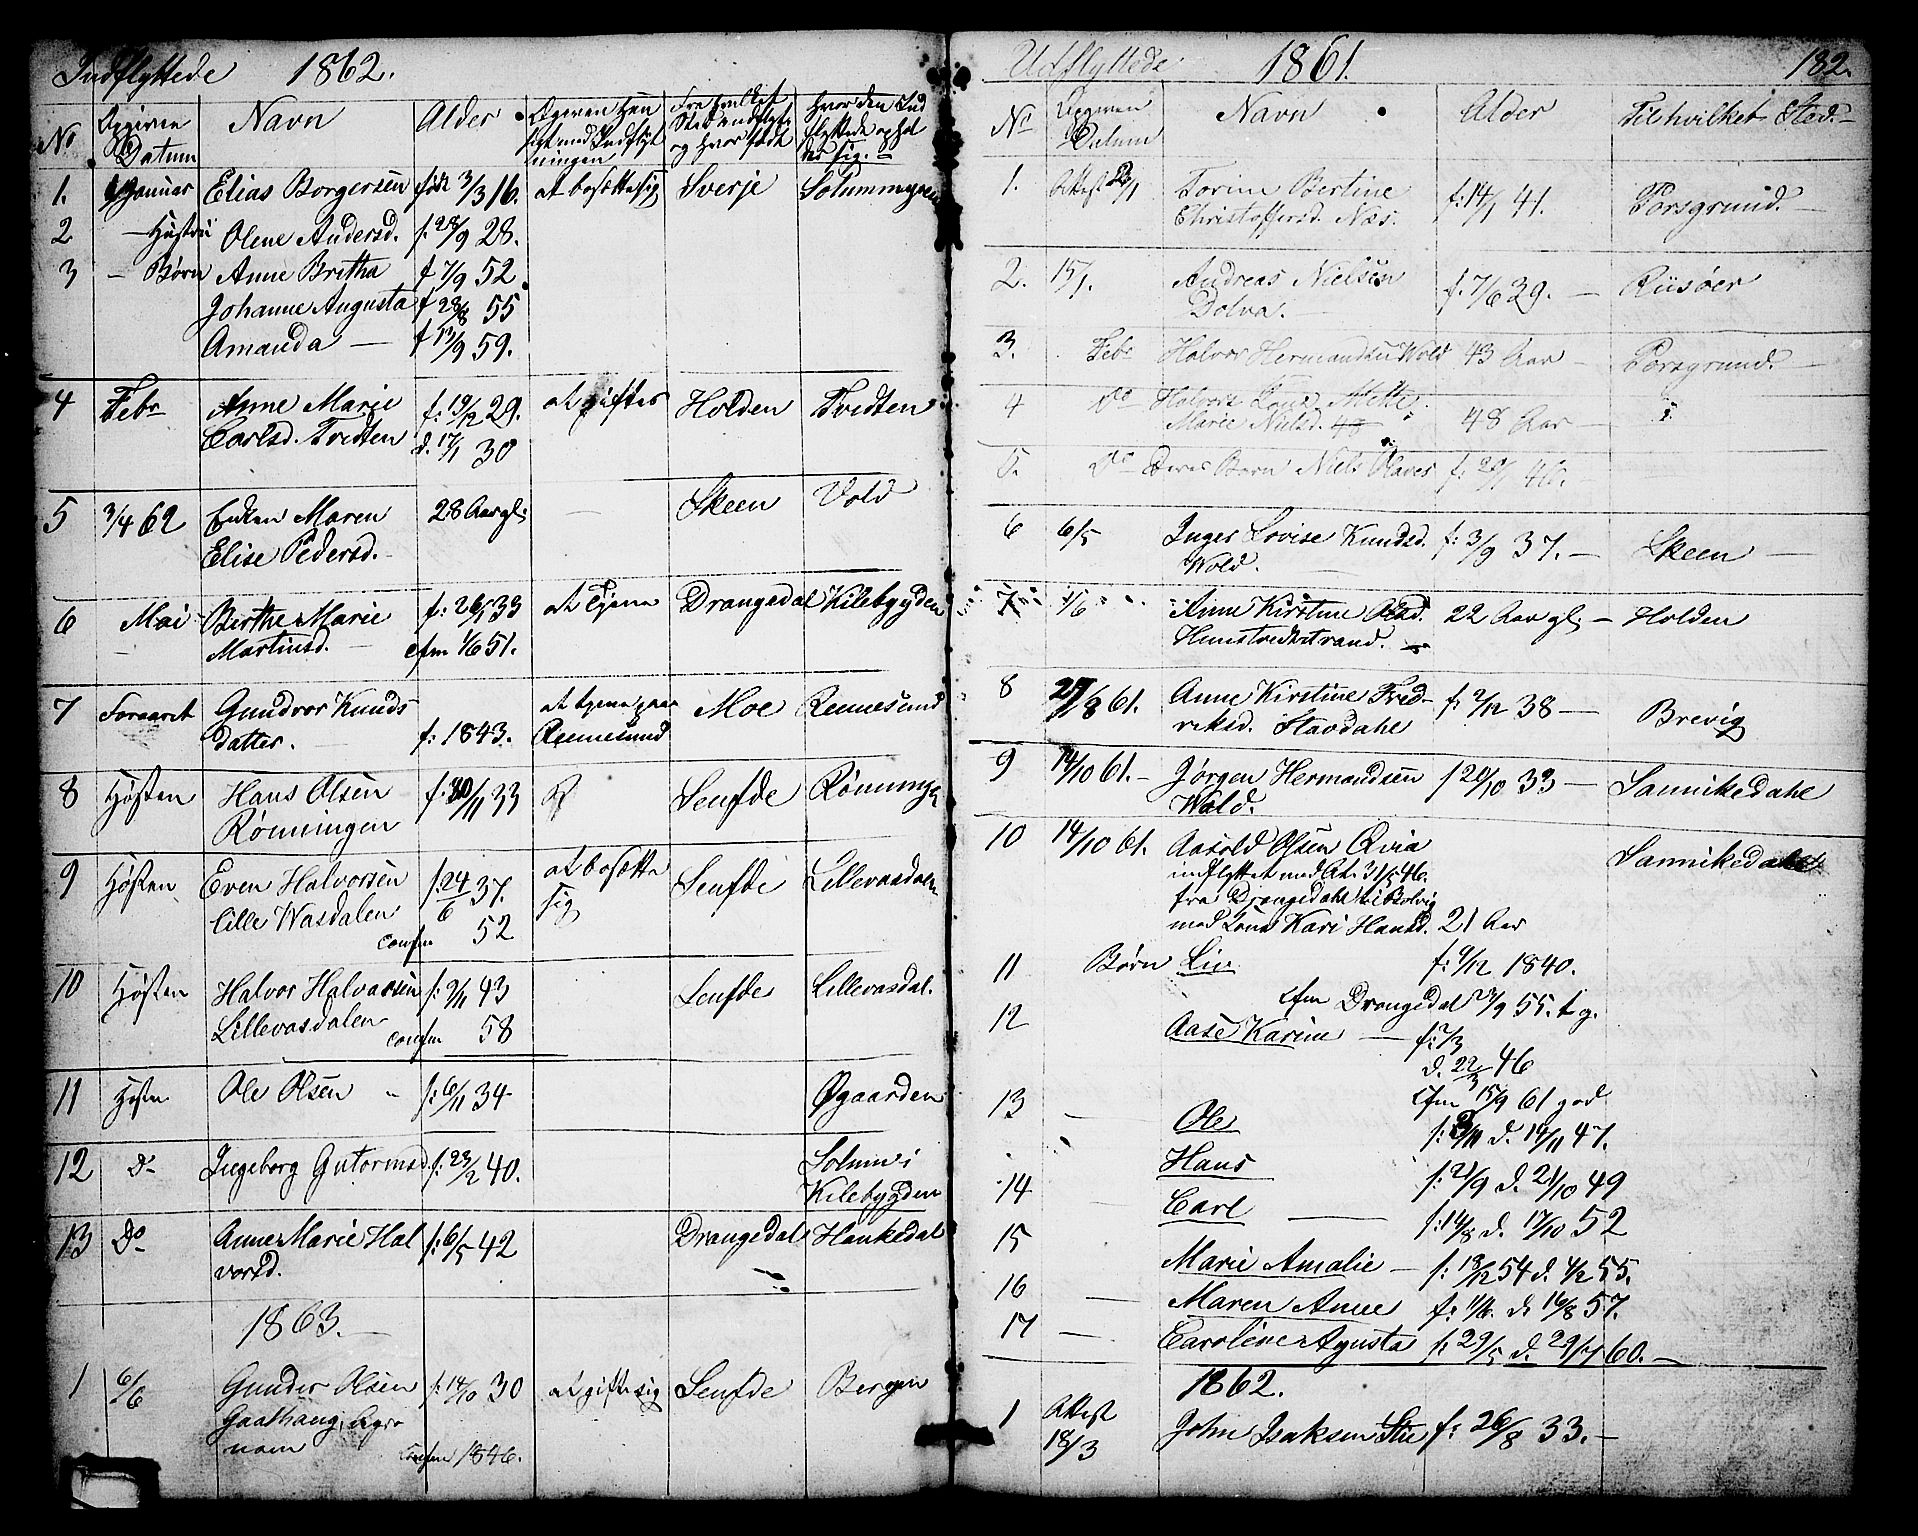 Indflyttede 1862.
No
Opgiven Datum
Navn
Alder
Opgiven Hen
sigt med Indflyt
ningen
Fra hvilket
Sted
og hvor født
Hvor den Ind
flyttede ophol
der sig.
1. Januar Elias Borgersen født 3/3 16. at bosætte sig Sverje Solummyren
2 – Hustru Olene Andersd. f. 28/9 28.
3 – Børn Anne Bretha f 7/9 52.
Johanne Augusta f 28/8 55
Amanda — f 13/9 59.
4 Febr Anne Marie f: 19/12 29. at giftes Holden Tvedten
Carlsd. Tvedten d. 17/1 30
5 3/4 62 Enken Maren 28 Aar gl: — Skeen Vold
Elise Pedersd.
6 Mai Berthe Marie f: 26/5 33 at tjene Drangedal Kilebygden
Martinsd. — cfm 1/6 51.
7 Foraaret Gundvor Knuds at tjene paa Moe Rennesund
datter. — f: 1843. Rennesund
8 Høsten Hans Olsen f: 30/11 33 Seufde
Rønningen
9 Høsten Even Halvorsen f: 24/6 37. at bosætte Seufde Lillevaasdalen
Lille Wasdalen sig
confm 52
10 Høsten Halvor Halvorsen f: 9/11 43 Seufde Lillevasdal.
Lillevasdalen confm 58
11 Høsten Ole Olsen " f: 6/11 34 Øgaarden
12 Do Ingeborg Gutormsd. f: 23/2 40. Solum i
Kilebygden
13 Do Anne Marie Hal f: 6/5 42 Drangedal Haukedal
vorsd.
1863.
1 6/6 Gunder Olsen f: 14/10 30 at gifte sig Seufde Bergen
Gaathaug,
confm 1846.
Udflyttede 1861. 182.
No
Opgiven Datum
Navn
Alder
Til hvilket Sted.
1. Attest 23/1 Torine Bertine f: 14/1 41. Porsgrund. —
Christoffersd. Næs.
2. 15/1 Andreas Nielsen f. 7/6 39. — Riisøer
Dolva.
3. Febr Halvor Hermandsen Wold 43 Aar — Porsgrund. —
4 Do Halvors Kone Mette
Marie Nielsd. 48 48 Aar —
5. Do Deres Barn Niels Olaves f: 20/1 46.
6 6/5 Inger Lovise Knudsd. f: 3/9 37. — Skeen —
Wold.
7 1/6 Anne Kirstine Olsd. 22 Aar gl: — Holden
Humstvedtstrand.
8 27/8 61. Anne Kirstine Fred- f: 2/12 38 — Brevig
riksd. Stavdahl
9 14/10 61. – Jørgen Hermandsen f 20/10 33 — Sannikedahl
Wold.
10 14/10 61. Aasold Olsen Qvia Sannikedahl
indflyttet med At. 31/5 46.
fra Drangedahl til Bolvig
med Kone Kari Hansd. 21 Aar
11 Børn Liv f: 9/12 1840.
cfm Drangedal 23/9 55. t g.
12 Aase Karine — f: 7/3
d. 22/3 46
Cfm 15/9 61 god
13 – Ole f: 3/11 d. 14/11 47.
Hans f: 2/9 d. 21/10 49
14 Carl — f: 14/8 d. 17/10 52
15 Marie Amalie — f: 18/12 54 d. 4/2 55.
16 — Maren Anne f: 11/6. d. 16/8 57.
17 — Caroline Agusta f: 29/5 d. 29/7 60. —
1862.
1 Attest
18/3 John Isaksen Stie f: 26/8 33. —